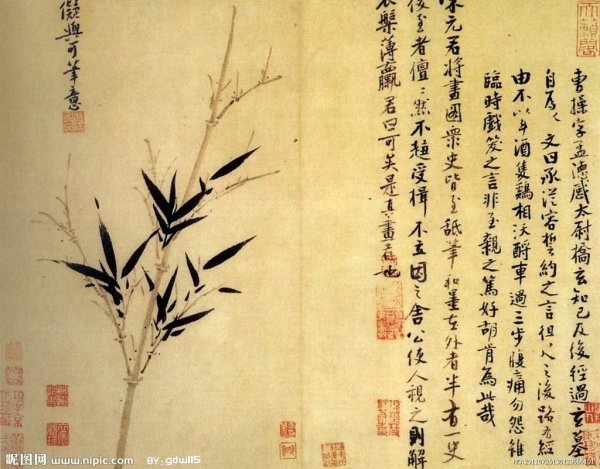 天籟閣
曹操字孟德感太尉橋玄知己及後經過玄墓
自為文曰承從容誓約之言徂之後路有經
由不以斗酒隻鷄相沃酹車過三步腹痛勿怨雖
臨時戲笑之言非至親之篤好胡肯為此哉
宋元君將畫圖衆史皆至舐筆和墨在外者半有一史
後至者儃〻然不趨受揖不立因之舍公使人視之則解
衣槃薄羸君曰可矣是真畫者也
儗與可筆意
昵图网 www.nipic.com BY: gdwll5